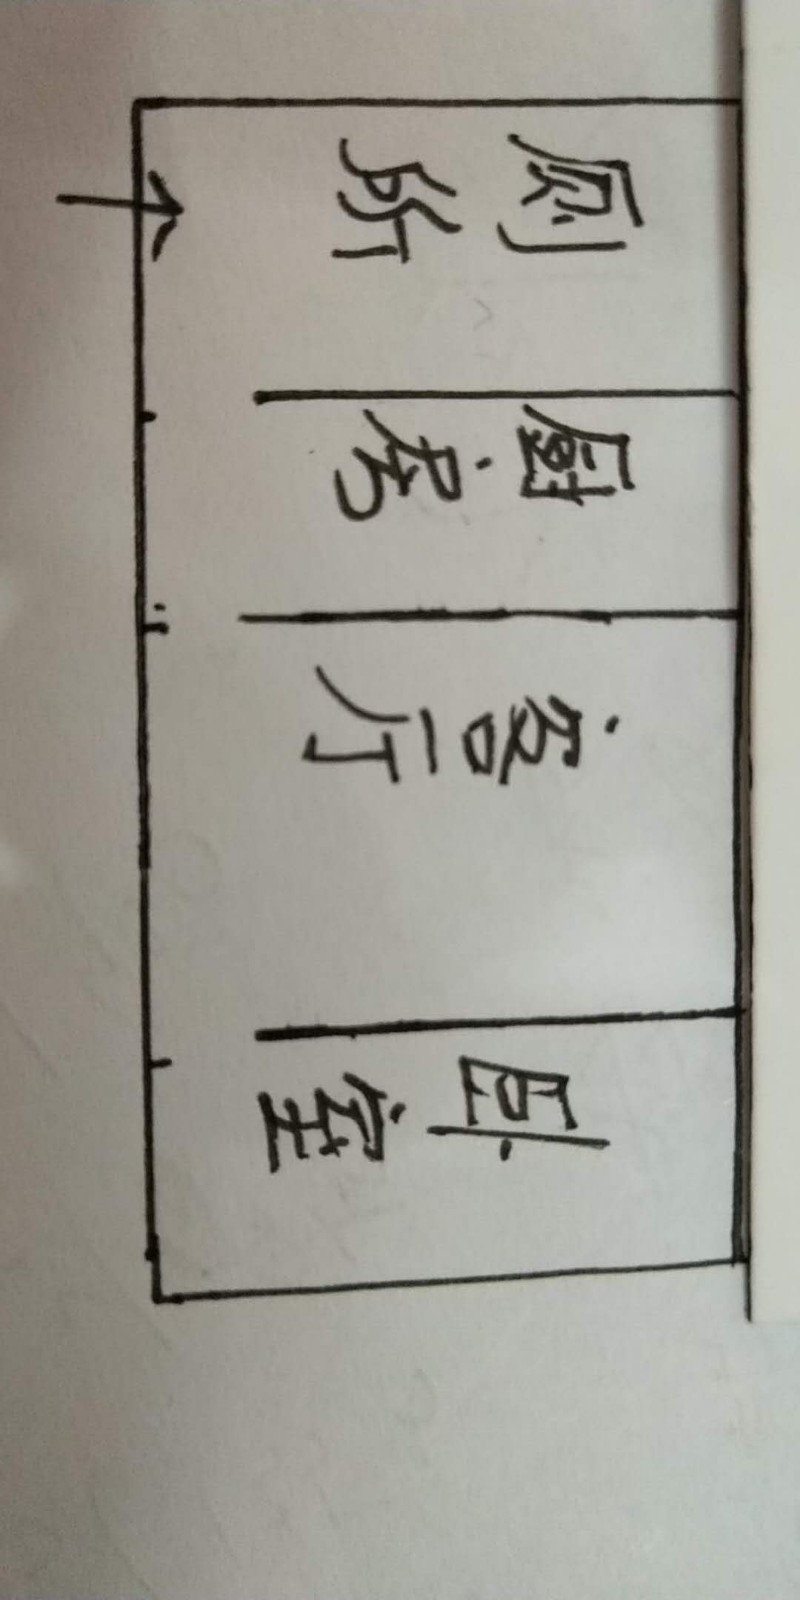 厕所
厨房
客厅
卧室